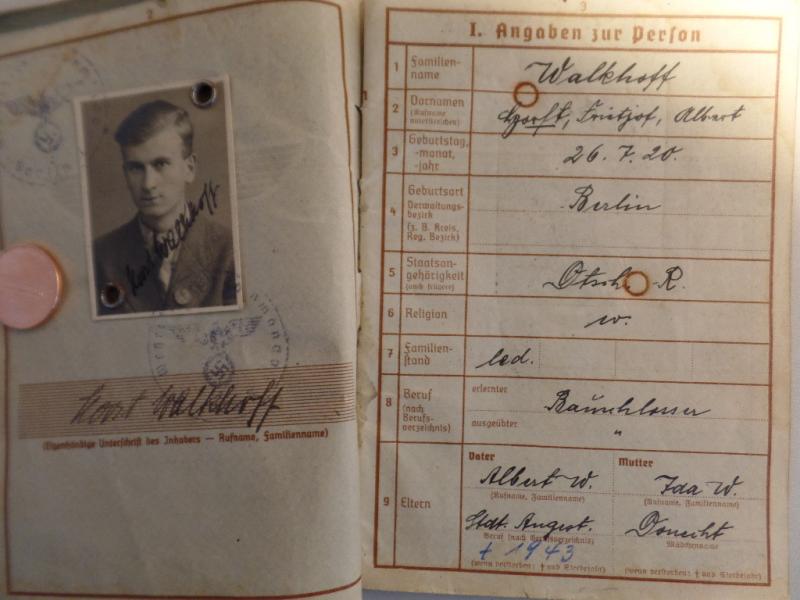 2
Horst Walkhoff
Horst Walkhoff
(Eigenhändige Unterschrift des Inhabers — Rufname, Familienname)
3
I. Angaben zur Person
1 Familien-
name
Walkhoff
2 Vornamen
(Rufname
unterstreichen)
Horst, Frietjof, Albert
3 Geburtstag,
-monat,
-jahr
26. 7. 20.
4 Geburtsort
Verwaltungs-
bezirk
(z. B. Kreis,
Reg. Bezirk)
Berlin
5 Staatsan-
gehörigkeit
(auch frühere)
Dtsch. R.
6 Religion
7 Familien-
stand
led.
8 Beruf
(nach
Berufs-
verzeichnis)
erlernter
Bauschlosser
ausgeübter
"
9 Eltern
Vater
Albert W.
(Rufname, Familienname)
Stdt. Angest.
Beruf (nach Berufsverzeichnis)
† 1943
(wenn verstorben: † und Sterbejahr)
Mutter
Ida W.
(Rufname, Familienname)
Mädchenname
(wenn verstorben: † und Sterbejahr)